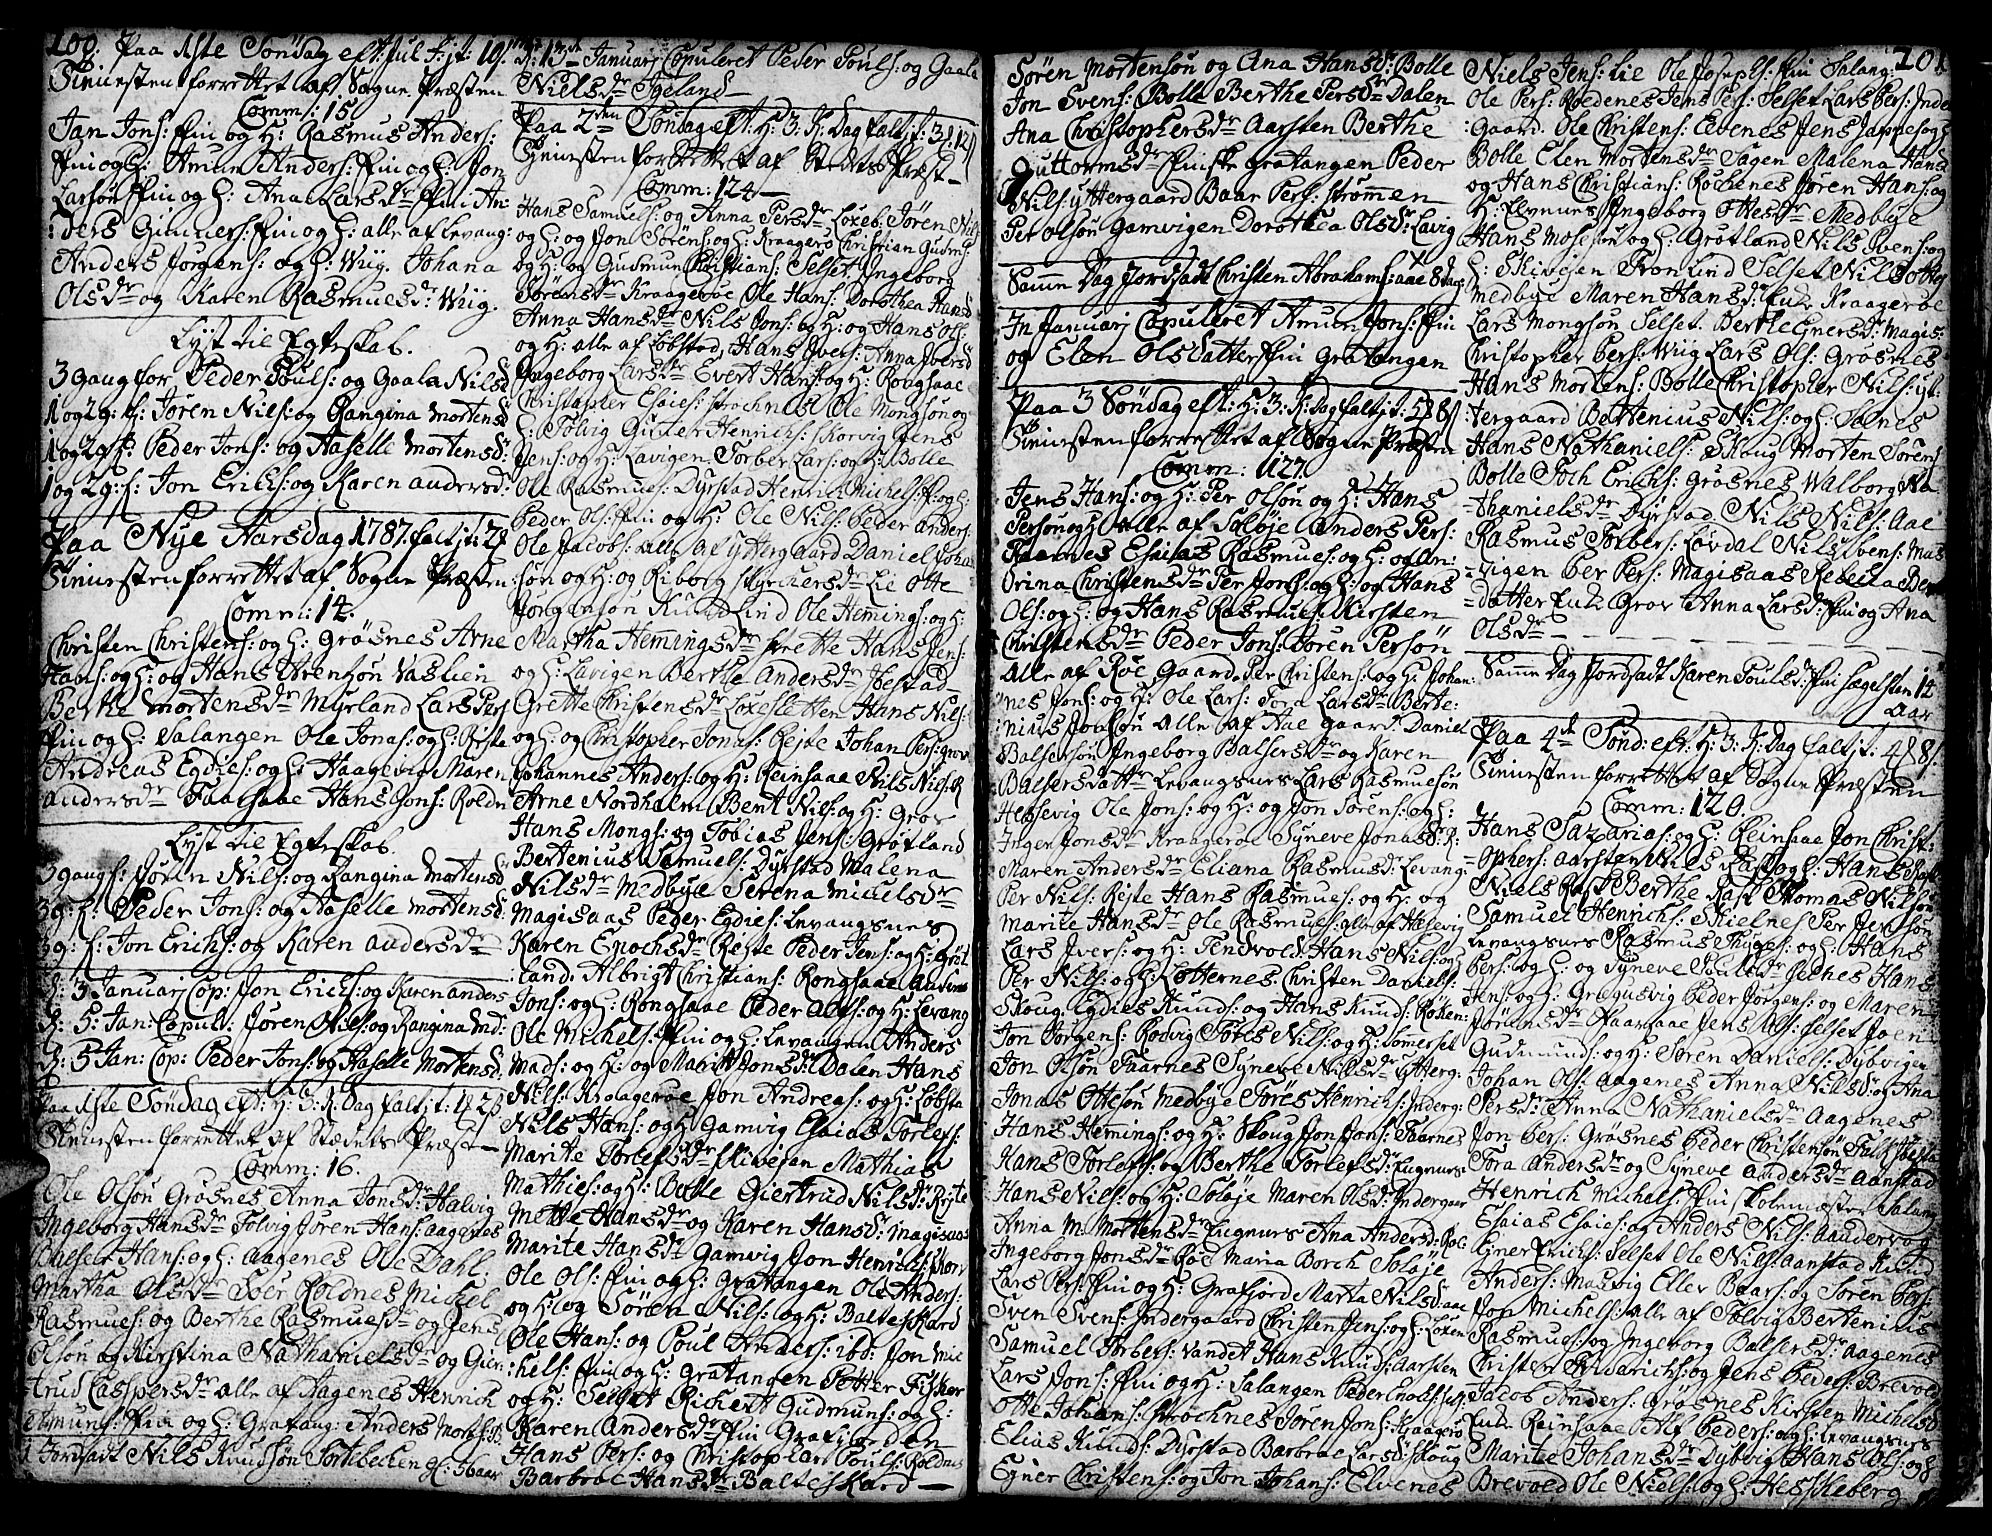 200.
Paa 1ste Söndag eft: Jul
Tienesten forrettet af Sogne Præsten
Comm: 15
Jan Jons: Fin og H: Rasmus Anders:
Fin og H: Amun Anders: Fin og H: Jon
Larsön Fin og H: Ana Larsdr Fin An-
:ders Gunners: Fin og H: alle af Levang:
Anders Jörgens: og H: Wiig. Johana
Olsdr og Karen Rasmuesdr Wiig.
Lyst til Egteskab.
3 gang for Peder Pouls: og Gaala Nilsd:
1 og 2 g: f: Jören Nils: og Rangina Mortensd:
1 og 2 g: f: Peder Jons: og Haselle Mortensd:
1 og 2 g: f: Jon Erichs: og Karen Andersd:
Paa Nye Aarsdag 1787. falt j t:
Tienesten forrettet af Sogne Præsten
Comm: 14.
Christen Christens: og H: Grösnes Arne
Hans: og H: og Hans Arentsön Vaslien
Berthe Mortensdr Myrland Lars Pers
Fin og H: Salangen Ole Jonas: og H: Rejste
Andreas Egdies: og H: Haagevig Maren
Andersdr Faarsaae Hans Jons: Roldn
Lyst til Egteskab.
3 gang f: Jören Nils: og Rangina Mortensd
3 g: f: Peder Jons: og Haselle Mortensd:
3 g: f: Jon Erichs: og Karen Andersdr
d: 3 Januarj Cop: Jon Erichs: og Karen Anders
d: 5: Jan: Copul: Jören Nils: og Rangina Md:
d: 5 Jan: Cop: Peder Jons: og Haselle Mortensd:
Paa 1ste Söndag eft: H: 3: K: Dag falt j t:
Tienesten forrettet af Stedets Præst
Comm: 16.
Ole Olsön Grösnes Anna Jonsdr Halvig
Ingeborg Hansdr Tölvig Jören Hans: Aagenes
Balser Hans: og H: Aagenes Ole Dahl
Martha Olsdr Soer Roldnes Mickel
Rasmus: og Berthe Rasmuesdr og Jens
Olsön og Kirstina Nathanielsdr og Gier:
trud Caspersdr alle af Aagenes Henrich
Amuns: Fin og H: Gratang: Anders Mortens:
Jordsadt Nils Knudsön Sortebecken
d: 13 Januarj Copuleret Peder Pouls: og Gaala
Nielsdr Igeland
Paa 2den Söndag eft: H: 3: K: Dag falt j t:
Tienesten forrettet af Stedets Præst
Comm: 124
Hans Samuels: og Anna Persdr Loxeb: Jören Nils
og H: og Jon Sörens: og H: Kraageröe Christian Gudm:
og H: og Gudmun Christians: Selset Ingeborg
Sörensdr Kraageröe Ole Hans: Dorothea Hansd
Anna Hansdr Nils Jons: og H: og Hans Ols:
og H: alle af Löbsted, Hans Ivers: Anna Iversd
Ingeborg Larsdr Evert Hans: og H: Rongsaae
Christopher Esaies: Strochnes Ole Mongsön og
H: Tölvig Gunner Henrichs: Skorvig Jens
Jens: og H: Lavigen Torber Lars: og H: Bolle
Ole Rasmues: Dyrstad Henrich Michels: F: og H:
Peder Ols: Fin og H: Ole Nils: Peder Anders:
Ole Jacobs: alle af Yttergaard Daniel Johan-
sön og H: og Riborg Styrchersdr Lie Otte
Jörgensön Knud Lind Ole Hemings: og H:
Martha Hemingsdr Krette Hans Jens:
og H: Lavigen Berthe Andersdr Ibestad
Grette Christensdr Loxesletten Hans Nils:
og H: og Christopher Jonas: Rejste Johan Pers: Grov
Johannes Anders: og H: Reinsaae Nils Nils: R
Arne Nordhalm Bent Nils: og H: Grov
Hans Mongs: og Tobias Jens: Grötland
Bertenius Samuels: Dyrstad Malena
Nilsdr Medbye Serena Michelsdr
Magisaas Peder Egdies: Levangsnes
Karen Enochsdr Rejste Peder Jens: og H: Gröt
:land: Albrigt Christians: Rongsaae Anders
Jons: og H: Rongsaae Peder Alfs: og H: Levang
Ole Michels: Fin og H: Levangen Anders
Mads: og H: og Marite Jonsdr Dalen Hans
Nils: Kraageröe Jon Andreas: og H: Löbsta
Nils Hans: og H: Gamvig Esaias Torlefs:
Marite Torlefsdr Skivejen Mathias
Mathies: og H: Bolle Giertrud Nilsdr Rejste
Mette Hansdr og Karen Hansdr Magisaas
Marite Hansdr Gamvig Jon Henrichs: Skorv
Ole Ols: Fin og H: Gratangen Ole Anders:
og H: og Sören Nils: og H: Balteskard
Ole Hans: og Poul Anders: ibd: Jon Mic
:hels: Fin og H: Gratangen Petter Fisker
og H: Selset Richert Gudmuns: og H:
Karen Andersdr Fin Gratfiorden
Hans Pers: og Christopher Pouls: Roldnes
Barbroe Hansdr Balteskard
Sören Mortensön og Ana Hansdr Bolle
Jon Svens: Bolle Berthe Persdr Dalen
Ana Christophersdr Aarsten Berthe
Guttormsdr Finske Gratangen Peder
Nils: Yttergaard Baar Pers: Strömmen
Per Olsön Gamvigen Dorothea Olsdr Lavig
Samme Dag Jordsadt Christen Abrahams: aae 8 dag
In Januarj Copuleret Amun Jons: Fin
og Elen Olsdatter Fin Gratangen
Paa 3 Söndag eft: H: 3: K: Dag falt j t:
Tienesten forrettet af Sogne Præsten
Comm: 127
Jens Hans: og H: Per Olsön og H: Hans
Persön og H: alle af Solöje Anders Pers:
Raarnes Esaias Rasmues: og H: og An:
Orina Christensdr Per Jons: og H: og Hans
Ols: og H: og Hans Rasmues: Kirsten
Christensdr Peder Jons: Sören Persön
Alle af Röe Gaard. Per Christens: og H: Johan:
nes Jons: og H: Ole Lars: Tora Larsdr Berte:
nius Jonsön alle af Aae Gaard. Daniel
Balsersön Ingeborg Balsersdr og Karen
Balsersdattr Levangsnes Lars Rasmuesön
Hessevig Ole Jons: og H: og Jon Sörens: og H:
Inger Jonsdr Kraageröe Syneve Jonasdr R:
Maren Andersdr Eliana Rasmusdr Levang:
Per Nils: Rejste Hans Rasmues: og H: og
Marite Hansdr Ole Rasmues: alle af Halsvig
Lars Ivers: og H: Tendvold: Hans Nils: og H
Per Nils: og H: Lotternes Christen Daniels:
Skoug Egdies Knuds: og Hans Knuds: Röken:
Jon Jörgens: Rotvig Töres Nils: og H: Somerset
Jon Olsön Faarnes Syneve Nilsdr Ytterg:
Jonas Ottesön Medbye Töres Henrichs: Inderg:
Hans Hemings: og H: Skoug Jon Jons: Faarnes
Hans Torlefs: og Berthe Torlefsdr Eugnnes
Hans Nils: og H: Solöje Maren Olsdr Indergaar
Anna M: Mortensdr Eugnnes Ana Andersdr Röe:
Ingeborg Jonsdr Röe Maria Borch Solöje
Lars Pers: Fin og H: Gratfjord Marta Nilsdr aae
Sven Svens: Indergaard Christen Jens: og H: Loxen
Samuel Torbers: Vandet Hans Knuds: Aarsten
Lars Jons: Fin og H: Salangen Peder Enochs: Sels:
Otte Johans: Strochnes Sören Jons: Kraagerö
Elias Knuds: Dyrstad Barbroe Larsdr Skoug
Egner Christens: og Jon Johans: Elvenes
201
Niels Jens: Lie Ole Josephs: Fin Salang:
Ole Pers: Roednes Jens Pers: Selset Lars Pers: Inder
:gaard. Ole Christens: Elvenes Jens Jappes: og H
Bolle Elen Mortensdr Sagen Malena Hansd
og Hans Christians: Röckenes Jören Hans: og
H: Elvenes Ingeborg Ottesdr Medbye
Hans Mosesön og H: Grötland Nils Svens: og
H: Skivejen Tron Lind Selset Nils Ottes
Medbye Maren Hansdr Enke Kraageröe
Lars Mongsön Selset. Berthe Egnersdr Magis:
Christopher Pers: Wiig Lars Ols: Grösnes
Hans Mortens: Bolle Christopher Nils: Yt:
tergaard Bertenius Nils: og H: Sornes
Hans Nathaniels: Skoug Morten Sörens
Bolle Toch Erichs: Grösnes Walborg Na
:thanielsdr Dyrstad Nils Nils: Aae
Rasmus Torbers: Lövdal Nils Svens: Mas
:vigen Per Pers: Magisaas Rebecka Ped
:datter Enke Grov Anna Larsdr Fin og Ana
Olsdr
Samme Dag Jordsadt Karen Poulsdr Fin Sægelsten 14
Aar
Paa 4de Sönd: eft: H: 3: K: Dag falt j t:
Tienesten forrettet af Sogne Præsten
Comm: 120.
Hans Sazarias: og H: Reinsaae Jon Christ:
:ophers: Aarsten Niels Rask og H: Hans Rask
Niels Rask Berthe Rask Thomas Nilsön
Samuel Henrichs: Skielnes Per Jensön
Levangsnes Rasmus Thyges: og H: Hans
Pers: og H: og Syneve Poulsdr Hans
Jens: og H: Grægusvig Peder Jörgens: og Maren
Jörensdr Faarsaae Jens Ols: Selset Joen
Gudmunds: og H: Sören Daniels: Dybvigen
Johan Ols: Aagenes Anna Nilsdr og Ana
Persdr Anna Nathanielsdr Aagenes
Jon Pers: Grösnes Peder Christensön Ibesta
Tora Andersdr og Syneve Andersdr Aanstad
Henrich Michels: Fin Skolmester Salang
Esaias Esaies: og Anders Nils: Aandervog
Egner Erichs: Selset Ole Nils: Aanstad Knud
Anders: Masvig Eller Baars: og Sören Pers:
Jon Michels: alle af Tölvig Bertenius
Rasmus: og Ingeborg Balsersdr Aagenes
Christen Fridrichs: og Jens Peders: Brevold
Jacob Anders: Grösnes Kirsten Michelsd
Enke Reinsaae Alf Peders: og H: Levangsnes
Marite Johansdr Dybvig Hans Ols: og H
Brevold Ole Niels: og H: Hesskeberg